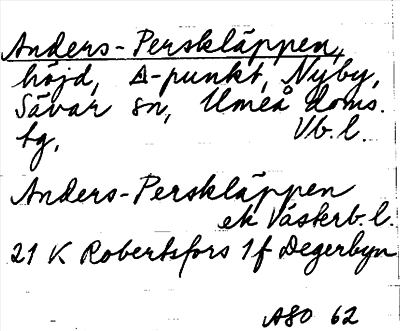 Anders-Perskläppen,
höjd, Δ-punkt, Nyby,
Sävar sn, Umeå doms.
tg, Vb. l.
Anders-Perskläppen
ek Västerb. l.
21 K Robertsfors 1f Degerbyn
ASO 62